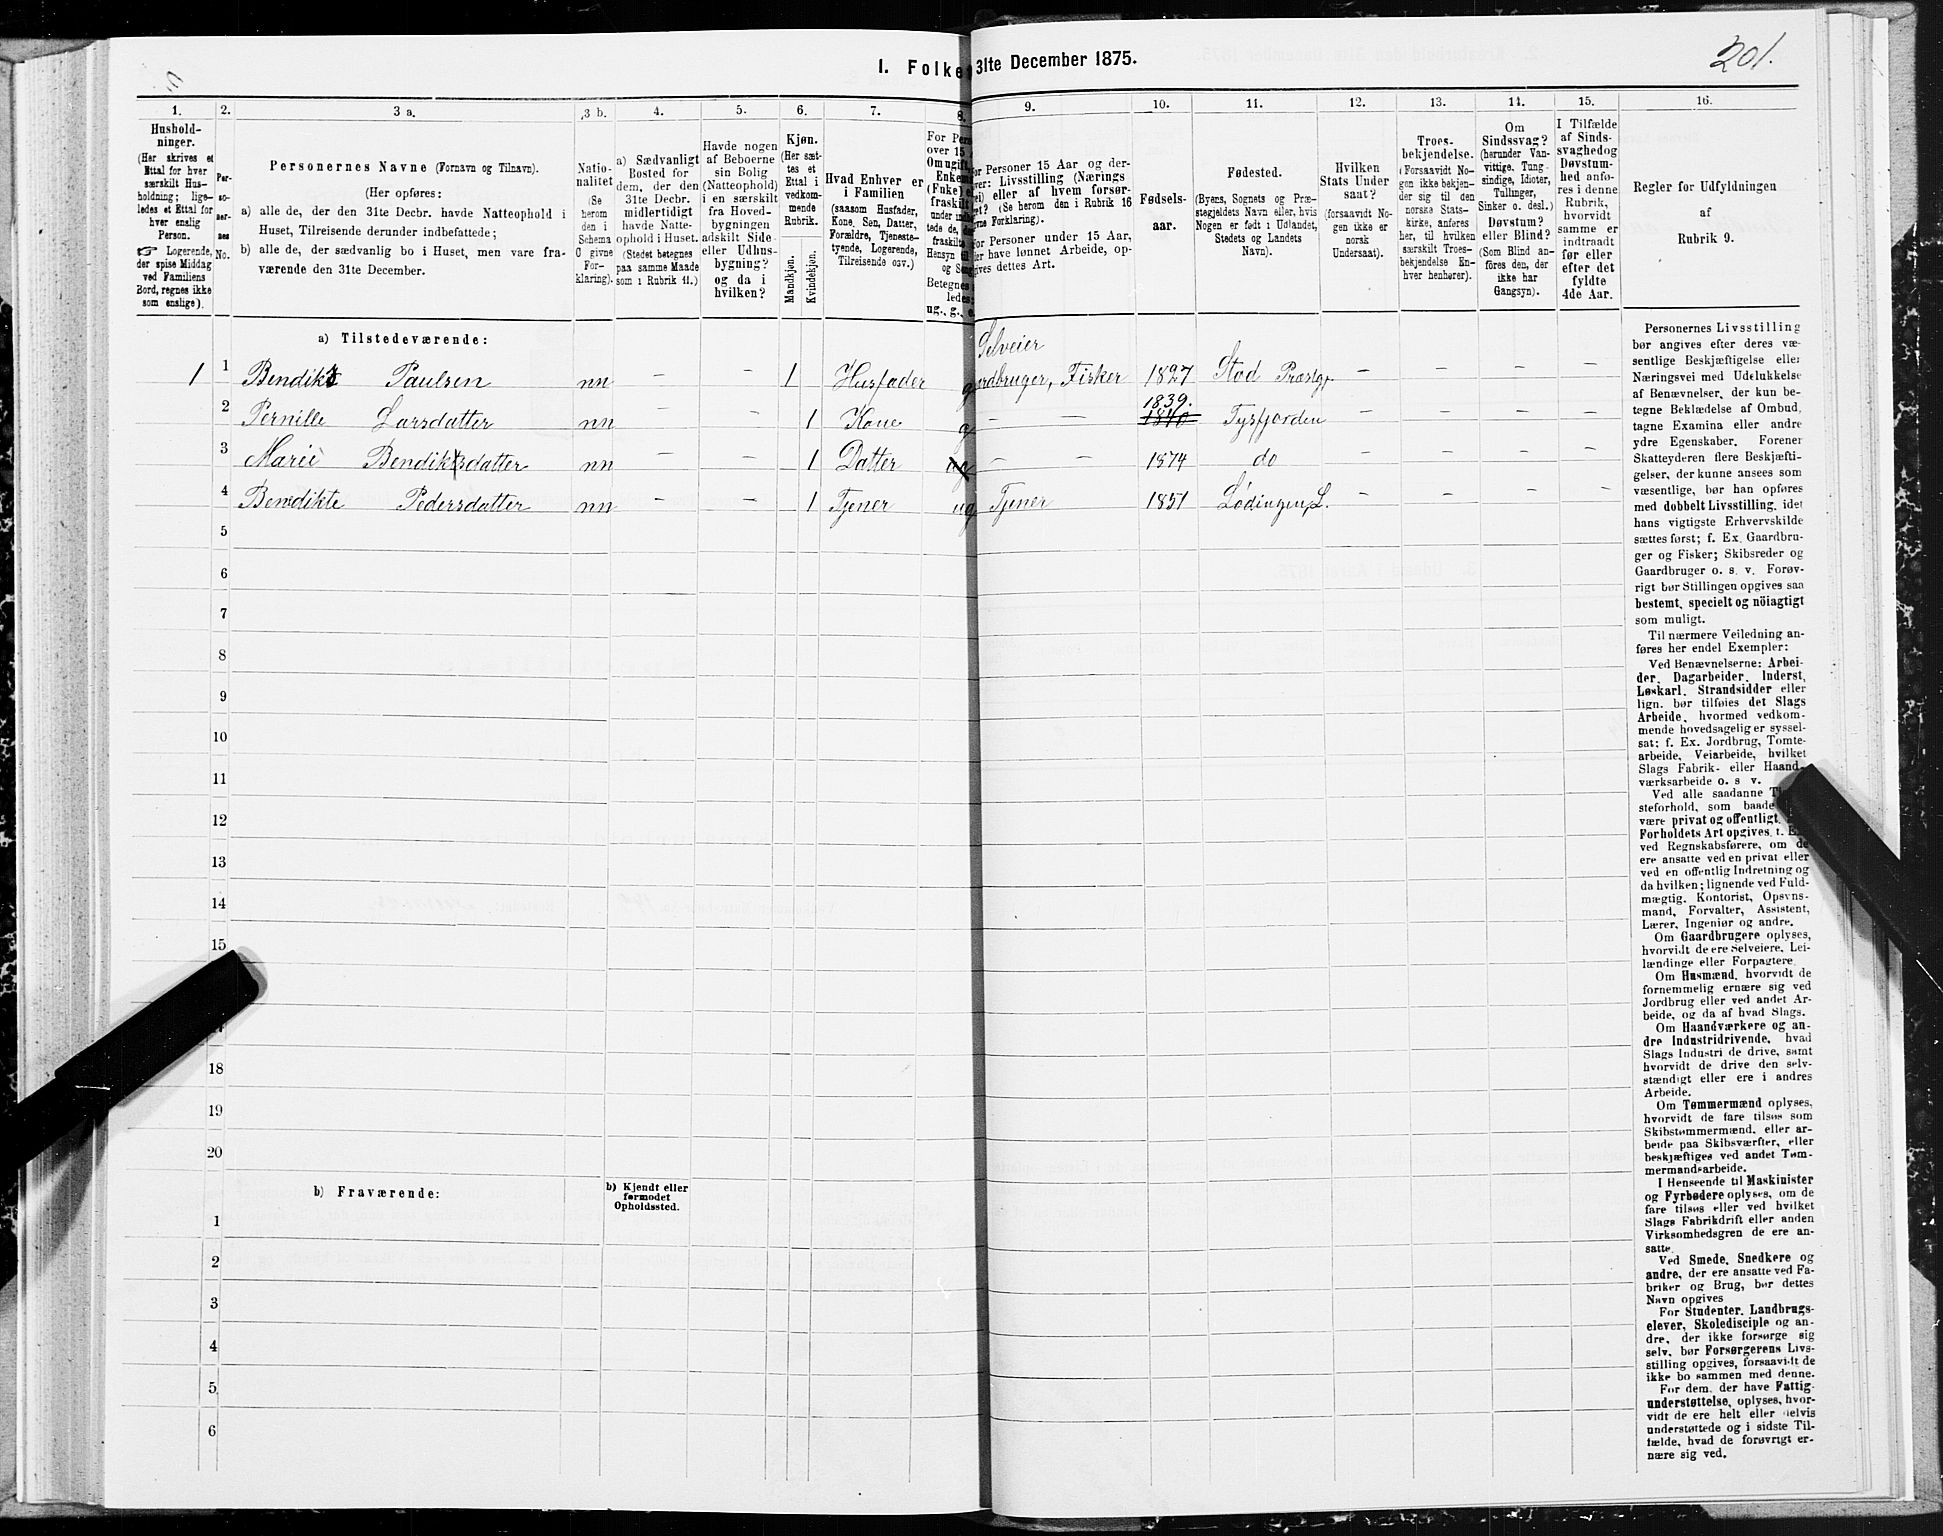 I. Folke 31te December 1875.
201.
1. 2. 3 a. 3 b. 4. 5. 6. 7. 8. 9. 10. 11. 12. 13. 14. 15. 16.
Hushold-
ninger.
(Her skrives et
Ettal for hver
særskilt Hus-
holdning; lige-
ledes et Ettal for
hver enslig
Person.
☞ Logerende,
der spise Middag
ved Familiens
Bord, regnes ikke
som enslige).
Per-
so-
ner-
nes
No.
Personernes Navne (Fornavn og Tilnavn).
(Her opføres:
a) alle de, der den 31te Decbr. havde Natteophold i
Huset, Tilreisende derunder indbefattede;
b) alle de, der sædvanlig bo i Huset, men vare fra-
værende den 31te December.
Natio-
nalitet
(Se
herom
den i
Schema
C givne
For-
klaring).
a) Sædvanligt
Bosted for
dem, der den
31te Decbr.
midlertidigt
havde Natte-
ophold i Huset.
(Stedet betegnes
paa samme Maade
som i Rubrik 11.)
Havde nogen
af Beboerne
sin Bolig
(Natteophold)
i en særskilt
fra Hoved-
bygningen
adskilt Side-
eller Udhus-
bygning?
og da i
hvilken?
Kjøn.
(Her sæt-
tes et
Ettal i
vedkom-
mende
Rubrik.
Mandkjøn.
Kvindekjøn.
Hvad Enhver er
i Familien
(saasom Husfader,
Kone, Søn, Datter,
Forældre, Tjeneste-
tyende, Logerende,
Tilreisende osv.)
For Pers
over 15
Omugift,
Enkem
(Enke)
fraskilt
under ind
tede de,
fraskilte
Hensyn til
og Seng
Betegnes
ledes:
ug., g., e.
or Personer 15 Aar og der-
ver: Livsstilling (Nærings
ei) eller af hvem forsør-
get? (Se herom den i Rubrik 16
vne Forklaring).
For Personer under 15 Aar,
der have lønnet Arbeide, op-
gives dettes Art.
Fødsels-
aar.
Fødested.
(Byens, Sognets og Præ-
stegjeldets Navn eller, hvis
Nogen er født i Udlandet,
Stedets og Landets
Navn).
Hvilken
Stats Under
saat?
(forsaavidt No-
gen ikke er
norsk
Undersaat).
Troes-
bekjendelse.
(Forsaavidt No-
gen ikke bekjen-
der sig til den
norske Stats-
kirke, anføres
her, til hvilken
særskilt Troes-
bekjendelse En-
hver henhører).
Om
Sindssvag?
(herunder Van-
vittige, Tung-
sindige, Idioter,
Tullinger,
Sinker o. desl.)
Døvstum?
eller Blind?
(Som Blind an-
føres den, der
ikke har
Gangsyn).
I Tilfælde
af Sinds-
svaghed og
Døvstum-
hed anfø-
res i denne
Rubrik,
hvorvidt
samme er
indtraadt
før eller
efter det
fyldte
4de Aar.
Regler for Udfyldningen
af
Rubrik 9.
a) Tilstedeværende:
Selveier
1 1 Bendikt Paulsen nn – – 1 Husfader g ordbruger, Fisker 1827 Stod Præstgj. – – – –
1839.
2 Pernille Larsdatter nn – – 1 Kone g – – 1840 Tysfjorden – – – –
3 Marie Bendiktsdatter nn – – 1 Datter ug – – 1874 do – – – –
4 Benedikte Pedersdatter nn – – 1 Tjener ug Tjener 1851 Lødingen, L. – – – –
5
6
7
8
9
10
11
12
13
14
15
18
19
20
b) Fraværende:
b) Kjendt eller
formodet
Opholdssted.
1
2
3
4
5
6
Personernes Livsstilling
bør angives efter deres væ-
sentlige Beskjæftigelse eller
Næringsvei med Udelukkelse
af Benævnelser, der kun be-
tegne Beklædelse af Ombud,
tagne Examina eller andre
ydre Egenskaber. Forener
Skatteyderen flere Beskjæfti-
gelser, der kunne ansees som
væsentlige, bør han opføres
med dobbelt Livsstilling, idet
hans vigtigste Erhvervskilde
sættes først; f. Ex. Gaardbru-
ger og Fisker; Skibsreder og
Gaardbruger o. s. v. Forøv-
rigt bør Stillingen opgives saa
bestemt, specielt og nöiagtigt
som muligt.
Til nærmere Veiledning an-
føres her endel Exempler:
Ved Benævnelserne: Arbei-
der, Dagarbeider, Inderst,
Løskarl, Strandsidder eller
lign. bør tilføies det Slags
Arbeide, hvormed vedkom-
mende hovedsagelig er syssel-
sat; f. Ex. Jordbrug, Tomte-
arbeide, Veiarbeide, hvilket
Slags Fabrik- eller Haand-
værksarbeide o. s v.
Ved alle saadanne Tj
steforhold, som baade
være privat og offentligt,
Forholdets Art opgives, f. E
ved Regnskabsførere, om de
ere ansatte ved en privat eller
ved en offentlig Indretning og
da hvilken; lignende ved Fuld-
mægtig, Kontorist, Opsyns-
mand, Forvalter, Assistent,
Lærer, Ingeniør og andre.
Om Gaardbrugere oplyses,
hvorvidt de ere Selveiere, Lei-
lændinge eller Forpagtere.
Om Husmænd, hvorvidt de
fornemmelig ernære sig ved
Jordbrug eller ved andet Ar-
beide, og da af hvad Slags.
Om Haandværkere og an-
dre Industridrivende, hvad
Slags Industri de drive, samt
hvorvidt de drive den selv-
stændigt eller ere i andres
Arbeide.
Om Tømmermænd oplyses,
hvorvidt de fare tilsøs som
Skibstømmermænd, eller ar-
beide paa Skibsværfter, eller
beskjæftiges ved andet Tøm-
mermandsarbeide.
I Henseende til Maskinister
og Fyrbødere oplyses, om de
fare tilsøs eller ved hvilket
Slags Fabrikdrift eller anden
Virksomhedsgren de ere an-
satte.
Ved Smede, Snedkere og
andre, der ere ansatte ved Fa-
briker og Brug, bør dettes
Navn opgives
For Studenter, Landbrugs-
elever, Skoledisciple og an-
dre, der ikke forsørge sig
selv, bør Forsørgerens Livs-
stilling opgives, forsaavidt de
ikke bo sammen med denne.
For dem, der have Fattig-
understøttelse, oplyses, hvor-
vidt de ere helt eller delvis
understøttede og i sidste Til-
fælde, hvad de forøvrigt er-
nære sig ved.